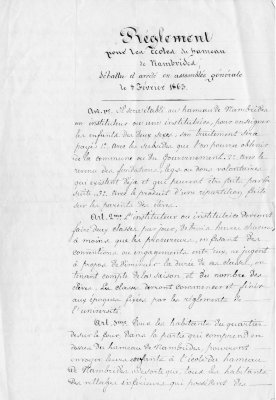 Règlement
pour les Écoles du hameau
de Nambrides,
débattu et arrêté en assemblée générale
le 8 Février 1863.
Art. 1er. Il sera établi au hameau de Nambrides
un instituteur ou une institutrice, pour enseigner
les enfants des deux sexes. son traitement sera
payé: 1º. avec les subsides que l'on pourra obtenir
de la commune ou du Gouvernement. 2º. avec le
revenu des fondations, legs ou dons volontaires
qui existent déjà et qui pourront être faits par la
suite. 3º. avec le produit d'une répartition faite
sur les parents des élèves.
Art. 2me. L'instituteur ou institutrice devront
faire deux classes par jour, de trois heures chacune,
à moins que les procureurs, en faisant des
conventions ou engagements entr'eux, ne jugent
à propos de diminuer la durée de ces classes, en
tenant compte de la saison et du nombre des
élèves. Les classes devront commencer et finir
aux époques fixées par les règlements de
l'université.
Art. 3me. Tous les habitants du quartier
dessus le four, dans la partie qui comprend en
dessus du hameau de Nambrides, pourront
envoyer leurs enfants à l'école du hameau
de Nambrides, de sorte que tous les habitants
des villages inférieurs qui possèdent des